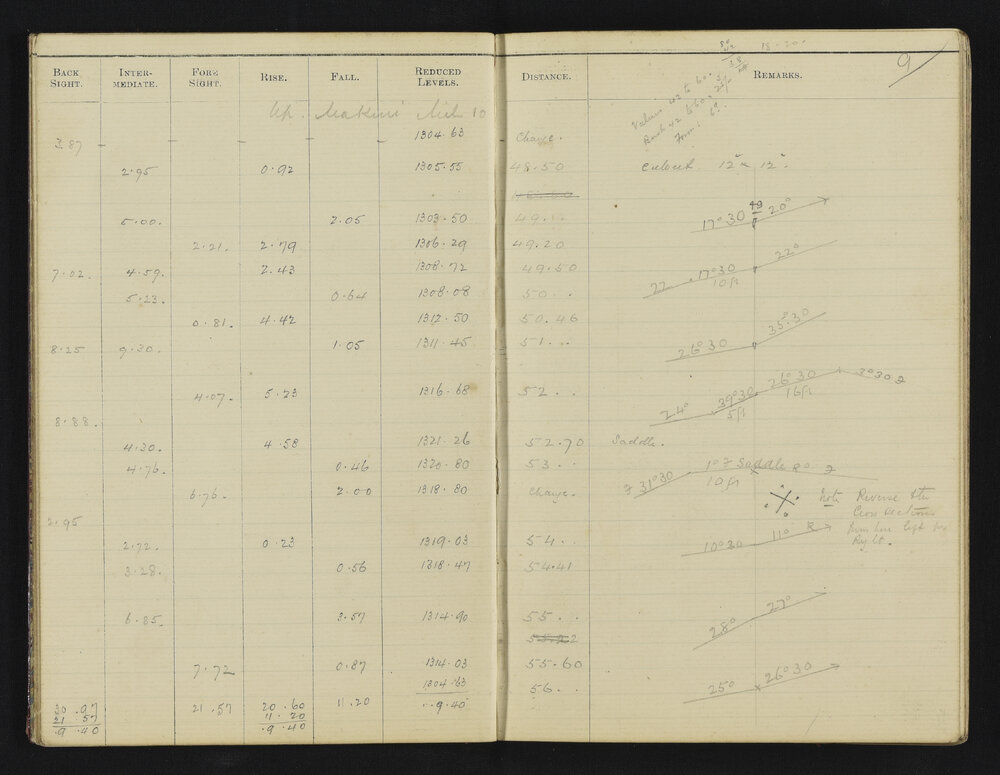 BACK SIGHT. INTER-MEDIATE. FORE SIGHT. RISE. FALL. REDUCED LEVELS. DISTANCE. REMARKS. 9
18 - 20
Up. Makino Mile 10
Values 42 to 60.
3.87 1304.63 Change.
2.95 0.92 1305.55 48.50 Culvert 12" x 12".
5.00. 2.05 1303.50 49... 17°30 20°
2.21. 2.79 1306.29 49.20
7.02. 4.59. 2.43 1308.72 49.50 22 . 17°30 22°
10ft
5.23. 0.64 1308.08 50..
0.81. 4.42 1312.50 50.46 35°.30
8.25 9.30. 1.05 1311.45 51... 26°30
4.07. 5.23 1316.68 52.. 24° 39°30 26°30 3°30
5ft 16ft
8.88.
4.30. 4.58 1321.26 52.70 Saddle.
4.76. 0.46 1320.80 53.. 31°30 1° F Saddle 8°
10ft
6.76. 2.00 1318.80 Change. Note Reverse the
Cross sections
from here left for
Right.
2.95
2.72. 0.23 1319.03 54.. 10°30 11° R
3.28. 0.56 1318.47 54.41
6.85. 3.57 1314.90 55.. 28° 27°
7.72 0.87 1314.03 55.60
1304.63 56.. 25° 26°30
30.97 21.57 20.60 11.20 ..9.40
21.57 11.20
.9.40 .9.40